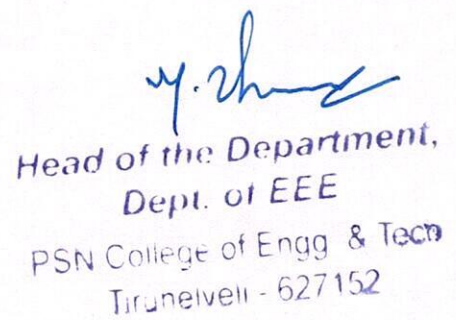 Head of the Department,
Dept. of EEE
PSN College of Engg & Tech
Tirunelveli - 627152